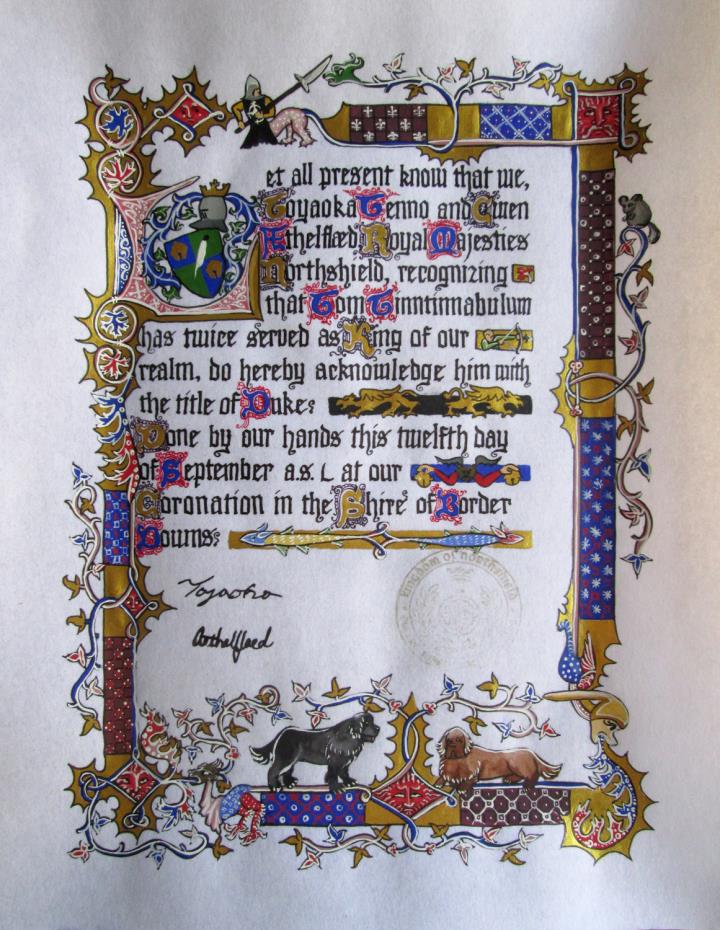 Let all present know that we,
Toyaoka Tenno and Cwen
Ethelflæd Royal Majesties
Northshield, recognizing
that Tom Tinntinnabulum
has twice served as King of our
realm, do hereby acknowledge him with
the title of Duke:
Done by our hands this twelfth day
of September a.s. L at our
Coronation in the Shire of Border
Downs:
Toyaoka
Æthelflaed
kingdom of northshield